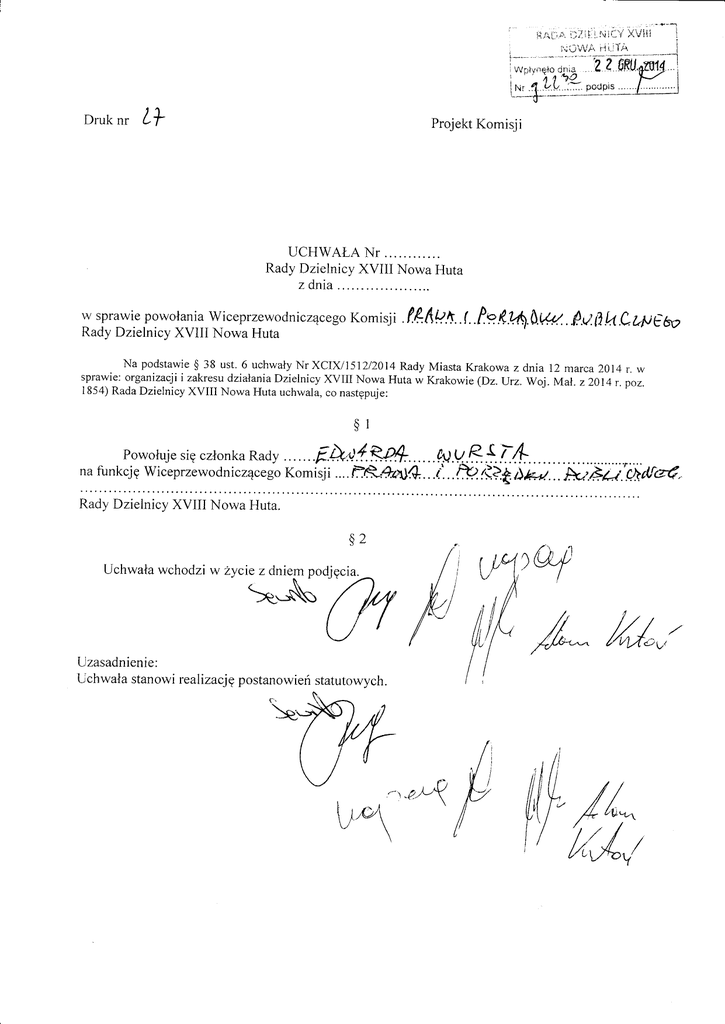 RADA DZIELNICY XVIII
NOWA HUTA
Wpłynęło dnia ...22 GRU. 2014...
Nr ............ podpis ................
Druk nr 27
Projekt Komisji
UCHWAŁA Nr ............
Rady Dzielnicy XVIII Nowa Huta
z dnia ....................
w sprawie powołania Wiceprzewodniczącego Komisji .PRAWA I PORZĄDKU PUBLICZNEGO
Rady Dzielnicy XVIII Nowa Huta
Na podstawie § 38 ust. 6 uchwały Nr XCIX/1512/2014 Rady Miasta Krakowa z dnia 12 marca 2014 r. w
sprawie: organizacji i zakresu działania Dzielnicy XVIII Nowa Huta w Krakowie (Dz. Urz. Woj. Mał. z 2014 r. poz.
1854) Rada Dzielnicy XVIII Nowa Huta uchwala, co następuje:
§ 1
Powołuje się członka Rady ......EDWARDA WURSTA
na funkcję Wiceprzewodniczącego Komisji ....PRAWA I PORZĄDKU PUBLICZNEG.
Rady Dzielnicy XVIII Nowa Huta.
§ 2
Uchwała wchodzi w życie z dniem podjęcia.
Adam
Uzasadnienie:
Uchwała stanowi realizację postanowień statutowych.
Adam